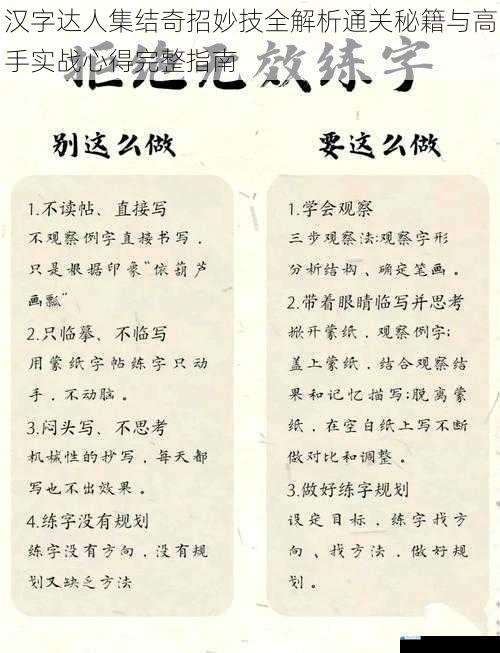 汉字达人集结奇招妙技全解析通关秘籍与高
手实战心得完整指南
拒绝无效练字
别这么做
1.不读帖、直接写
不观察例字直接书写，
只是根据印象“依葫芦
画瓢”
2.只临摹、不临写
用蒙纸字帖练字只动
手，不动脑。
3.闷头写、不思考
机械性的抄写，每天都
写也不出效果。
4.练字没有规划
练字没有方向，没有规
划又缺乏方法
要这么做
1.学会观察
三步观察法:观察字形
分析结构、确定笔画。
2.带着眼睛临写并思考
掀开蒙纸，观察例字;
盖上蒙纸，结合观察结
果和记忆描写;脱离蒙
纸，在空白纸上写不断
做对比和调整。
3.做好练字规划
设定目标，练字找方
向、找方法，做好规
划。